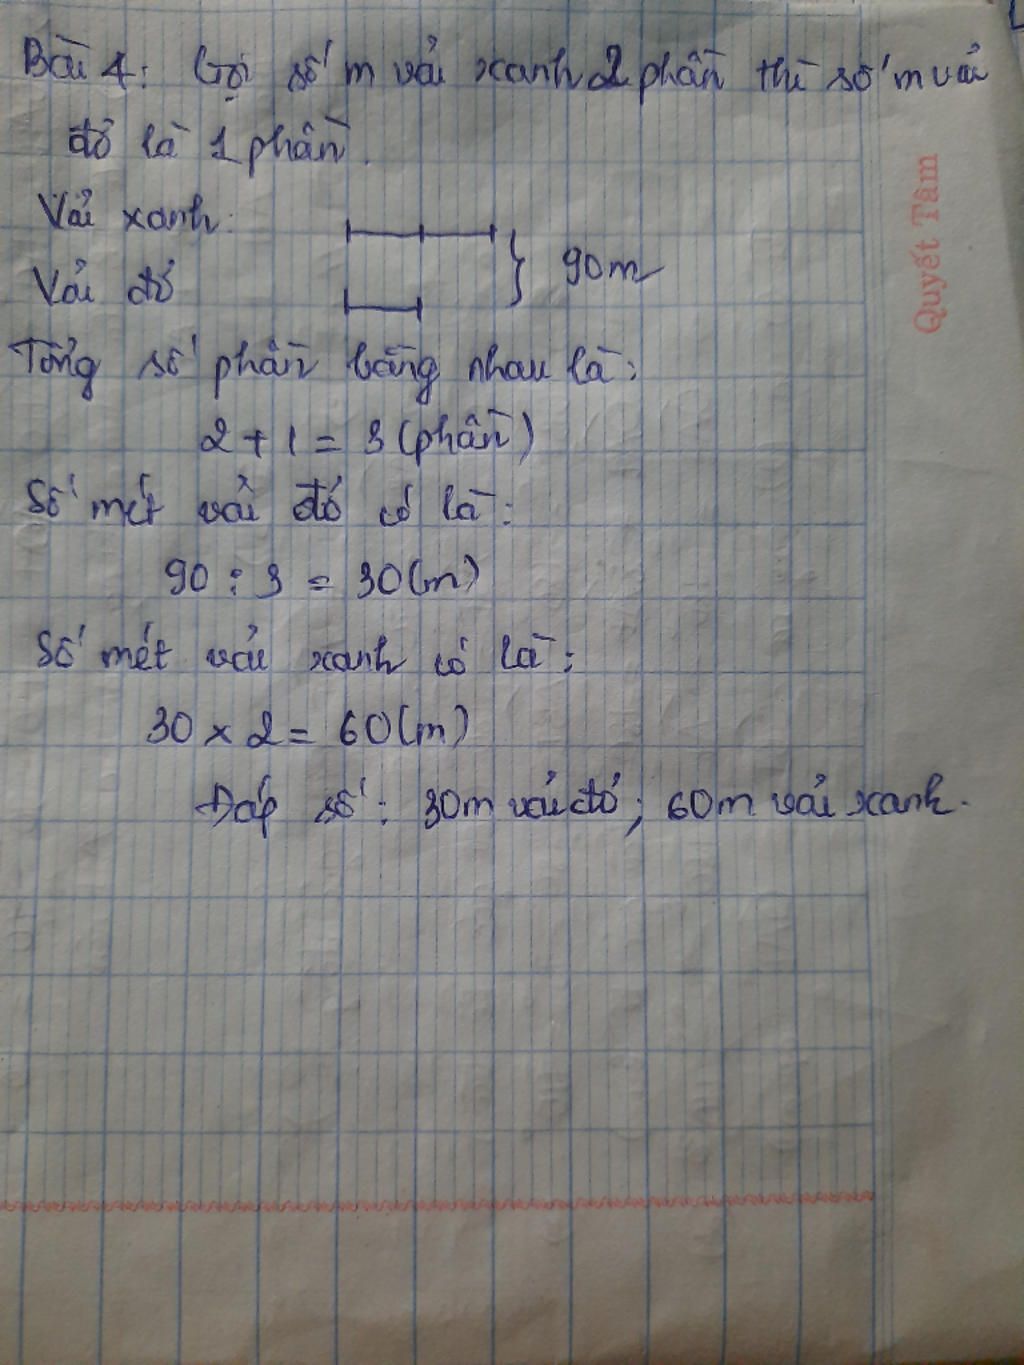 Bài 4: Gọi số m vải xanh 2 phần thì số m vải
đỏ là 1 phần.
Vải xanh:
Vải đỏ
90m
Tổng số phần bằng nhau là:
2 + 1 = 3 (phần)
Số mét vải đỏ có là:
90 : 3 = 30 (m)
Số mét vải xanh có là:
30 x 2 = 60 (m)
Đáp số: 30m vải đỏ; 60m vải xanh.
Quyết Tâm